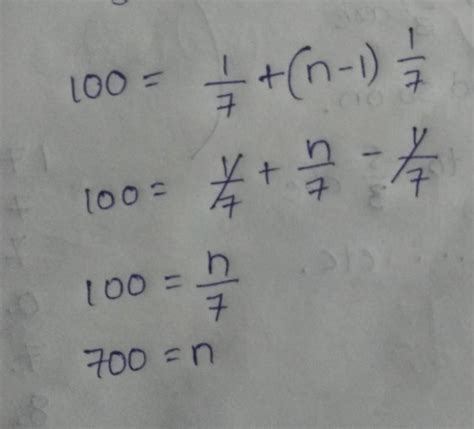 100 = 1/7 + (n-1) 1/7
100 = 1/7 + n/7 - 1/7
100 = n/7
700 = n